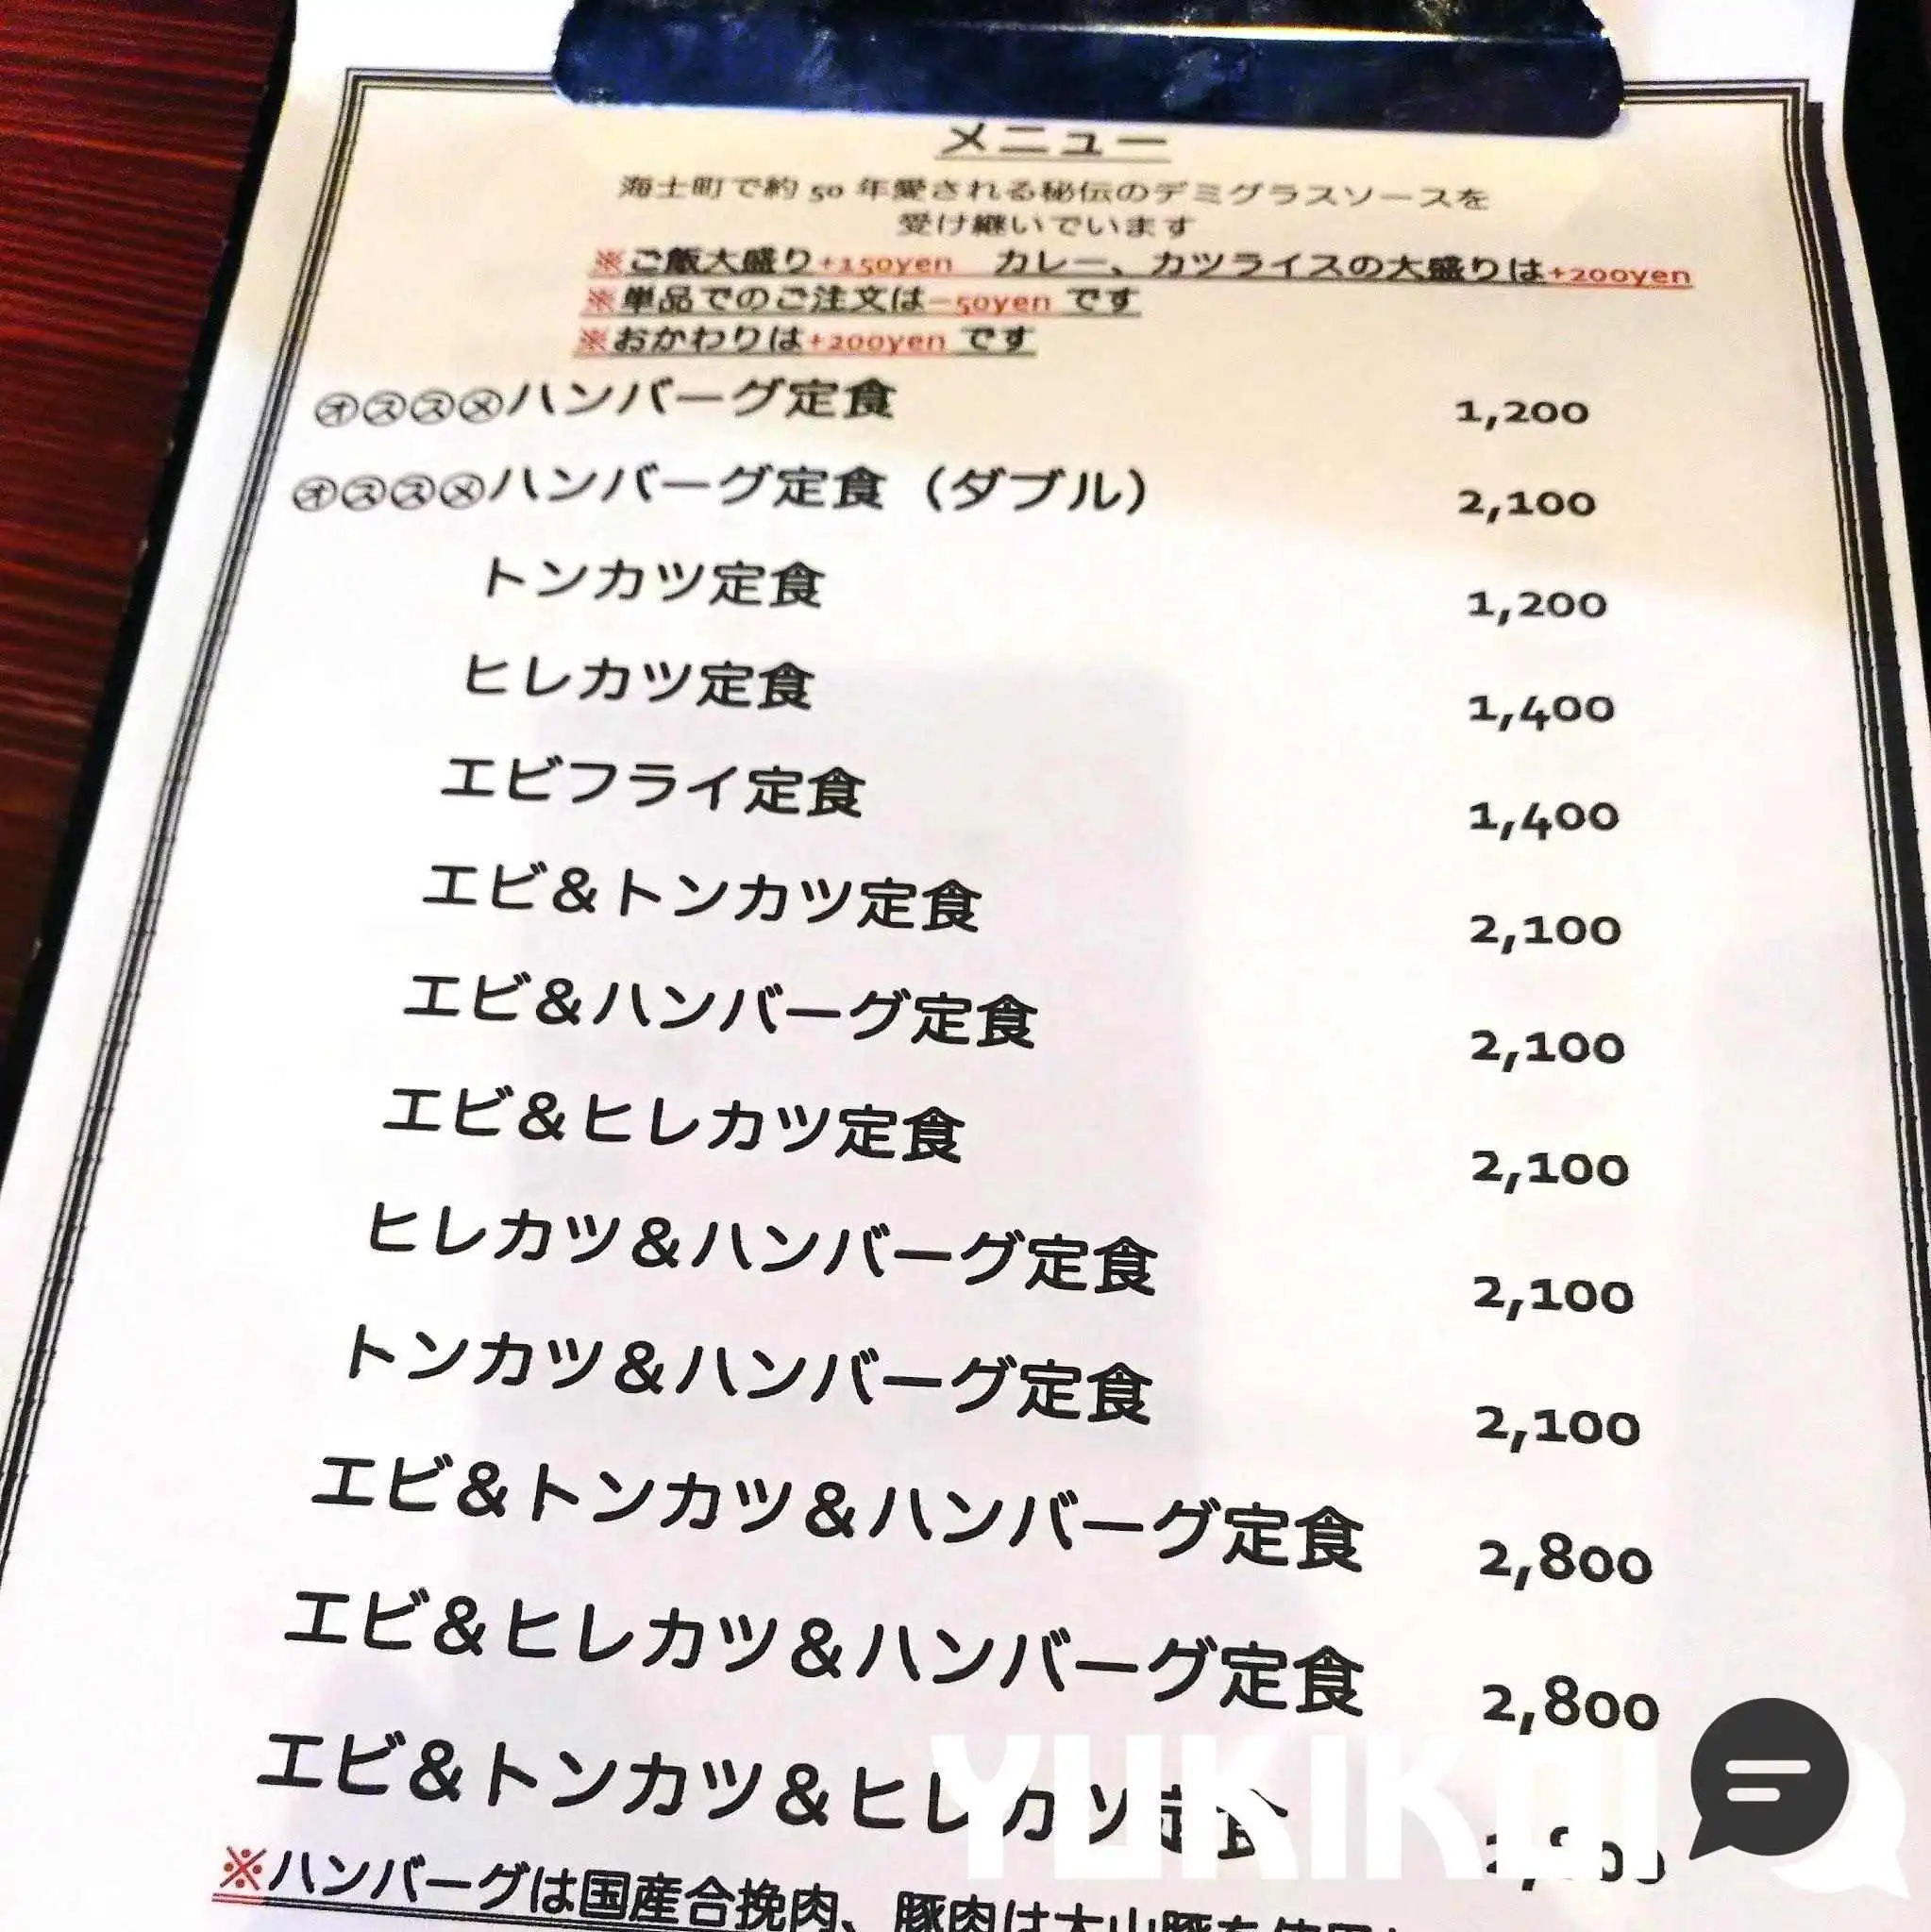 メニュー
海士町で約 50 年愛される秘伝のデミグラスソースを
受け継いでいます
※ご飯大盛り+150yen カレー、カツライスの大盛りは+200yen
※単品でのご注文は-50yen です
※おかわりは+200yen です
㋔㋜㋜㋱ハンバーグ定食 1,200
㋔㋜㋜㋱ハンバーグ定食（ダブル） 2,100
トンカツ定食 1,200
ヒレカツ定食 1,400
エビフライ定食 1,400
エビ&トンカツ定食 2,100
エビ&ハンバーグ定食 2,100
エビ&ヒレカツ定食 2,100
ヒレカツ&ハンバーグ定食 2,100
トンカツ&ハンバーグ定食 2,100
エビ&トンカツ&ハンバーグ定食 2,800
エビ&ヒレカツ&ハンバーグ定食 2,800
エビ&トンカツ&ヒレカツ定食
※ハンバーグは国産合挽肉、豚肉は大山豚を使用